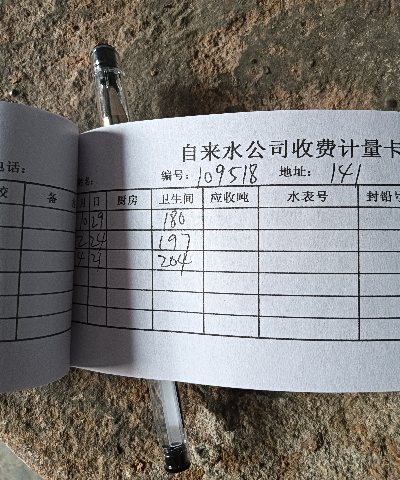 自来水公司收费计量卡
电话：
编号：109518 地址：141
备 月 日 厨房 卫生间 应收吨 水表号 封铅号
10 29 180
2 24 197
4 21 204